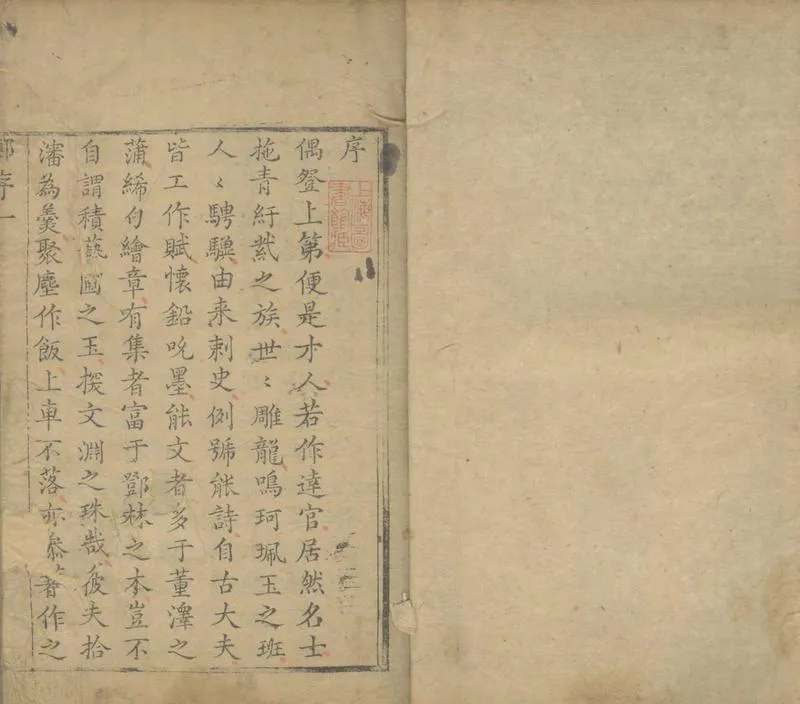 序
上海圖書館藏
偶登上第便是才人若作達官居然名士
拖青紆紫之族世〻雕龍鳴珂珮玉之班
人〻騁驥由来刺史例號能詩自古大夫
皆工作賦懷鉛吮墨能文者多于董澤之
蒲絺句繪章有集者富于鄧林之木豈不
自謂積藝圃之玉探文淵之珠哉彼夫拾
瀋為羹聚塵作飯上車不落亦叅著作之
序一